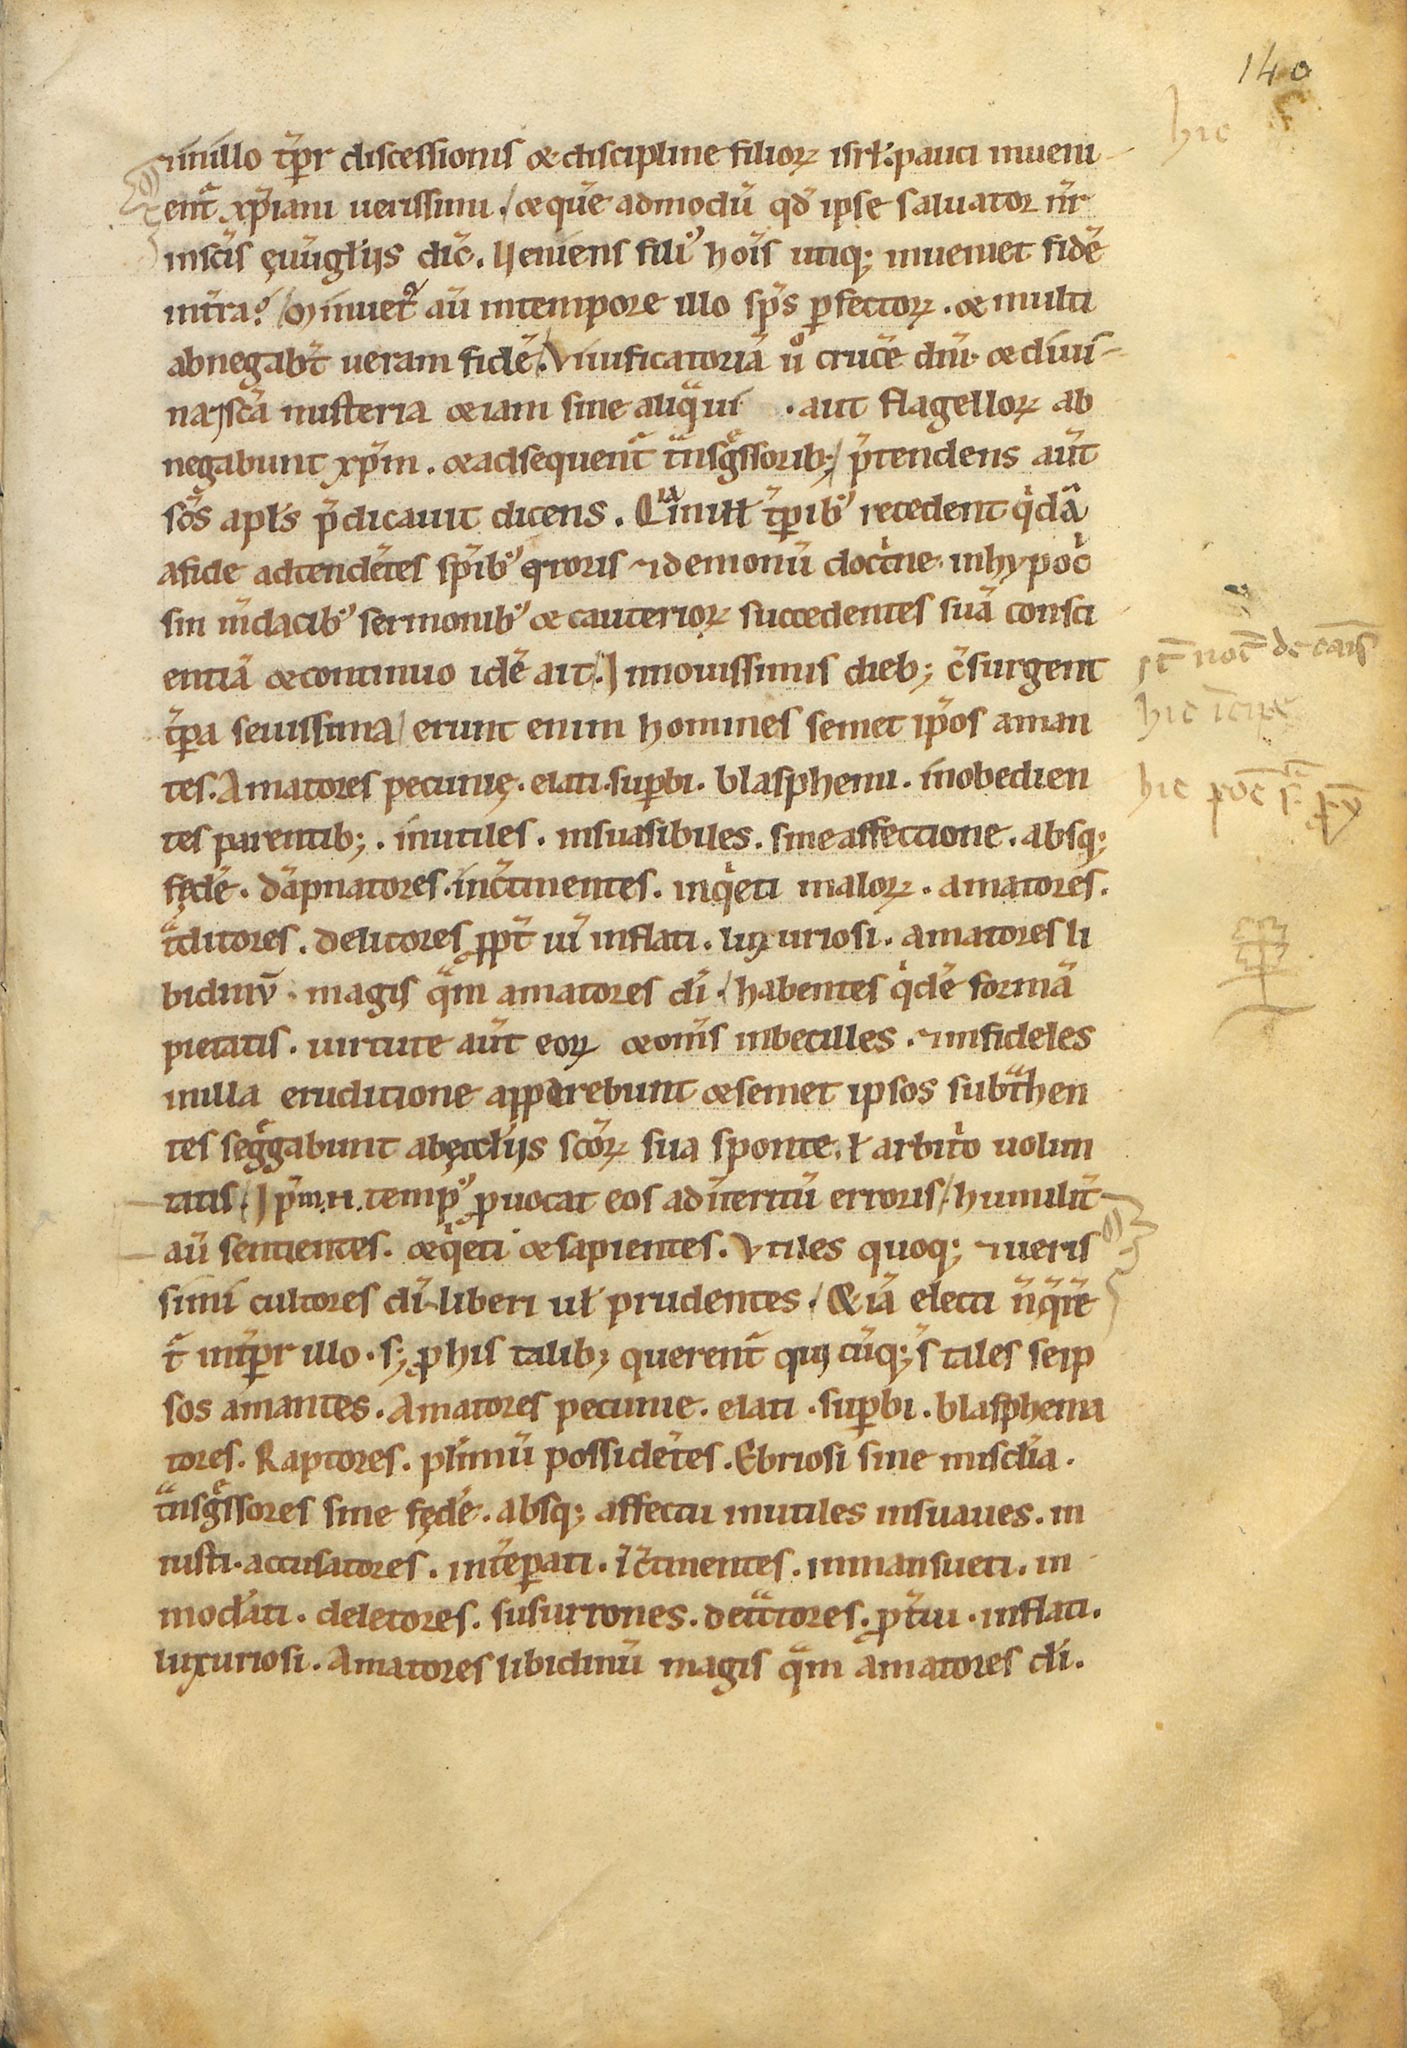 140
hic
inillo tp̄r discessionis & discipline filioꝝ isrł. pauci inueni-
ent̄ xp̄iani uerissimi. & quē admodū qđ ipse saluator nr̄
insc̄is ęuūgłijs dic̄. Veniens filiꝰ hoīs utiqꝫ inueniet fidē
intr̄a?
aū intempore illo sp̄s p̄fectoꝝ. & multi
abnegabt̄ ueram fidē. Viuificatoriā u̾ crucē dn̄i. & diui-
najsc̄a misteria & iam sine aliqͣ ui . aut flagelloꝝ ab
negabunt xp̄m. & adsequent̄ tͣnsgͤssoribꝫ p̄tendens aūt
sc̄s apłs p̄dicauit dicens. Qͥa inill̄ tp̄ibꝰ recedent qͥdā
afide adtendētes sp̄ibꝰ erroris & demonū doctͥne. inhypocͥ
sin m̄dacibꝰ sermonibꝰ & cauterioꝝ succedentes suā consci
entiā & continuo idē ait. Innouissimis diebꝫ c̄surgent
tp̄ra seuissima / erunt enim homines semet ip̄os aman
tes. Amatores pecunię. elati. suꝑbi. blasphemi. inobedien
tes parentibꝫ. inutiles. insuasibiles. sine affectione. absqꝫ
fędē. dāpnatores. inc̄tinentes. inqͥeti maloꝝ. amatores.
tͣditores. delitores ꝓpt̄ ui inflati. luxuriosi. amatores li
bidinū. magis qͣm amatores dī. / habentes qͥdē formā
pietatis. uirtute aūt eoꝝ & om̄s inbecilles. & infideles
inilla eruditione apparebunt & semet ipsos subtͣhen
tes segͤgabunt abęccłijs sc̄oꝝ sua sponte. ł arbitͥo uolun
tatis. Ip̄m .n. tempꝰ ꝓuocat eos adīteritū erroris / humilit̄
aū sentientes. & qͥeti & sapientes. Vtiles quoqꝫ & ueris
simi cultores dī. liberi uł prudentes. / & iā electi n̄ qͥre
t̄ intp̄r illo. sꝫ ꝓ his talibꝫ querent̄ qui cūqꝫ s̄ tales seip
sos amantes. Amatores pecunie. elati. suꝑbi. blasphema
tores. Raptores. plīmū possidētes. Ebriosi sine misc̄dia.
tͣnsgͤssores sine fędē. absqꝫ affectu inutiles insuaues. in
iusti. accusatores. intēꝑati. īc̄tinentes. inmansueti. in
modati. deletores. susurrones. detͣctores. ꝓt̄ui. inflati.
luxuriosi. Amatores libidinū magis qͣm amatores dī.
hic
hic